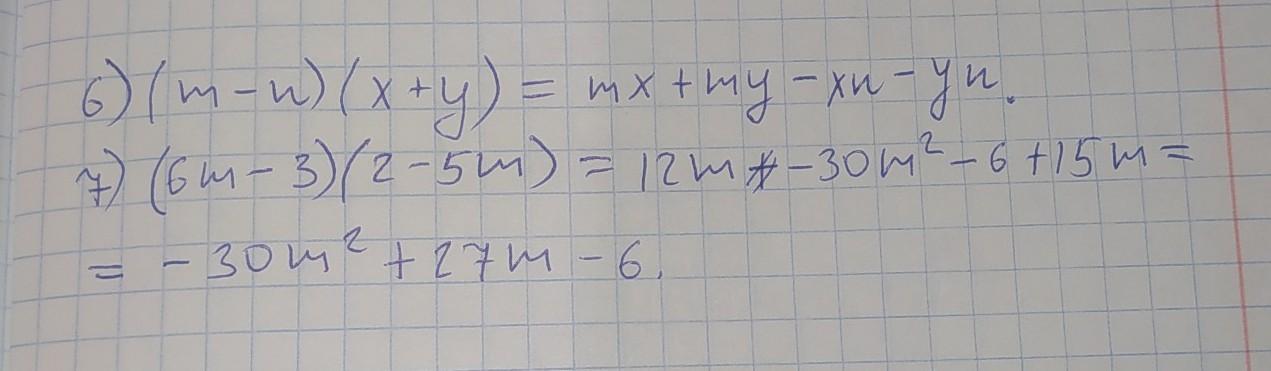 6) (m-n)(x+y) = mx+my-xn-yn.
7) (6m-3)(2-5m) = 12m-30m²-6+15m=
= -30m²+27m-6.